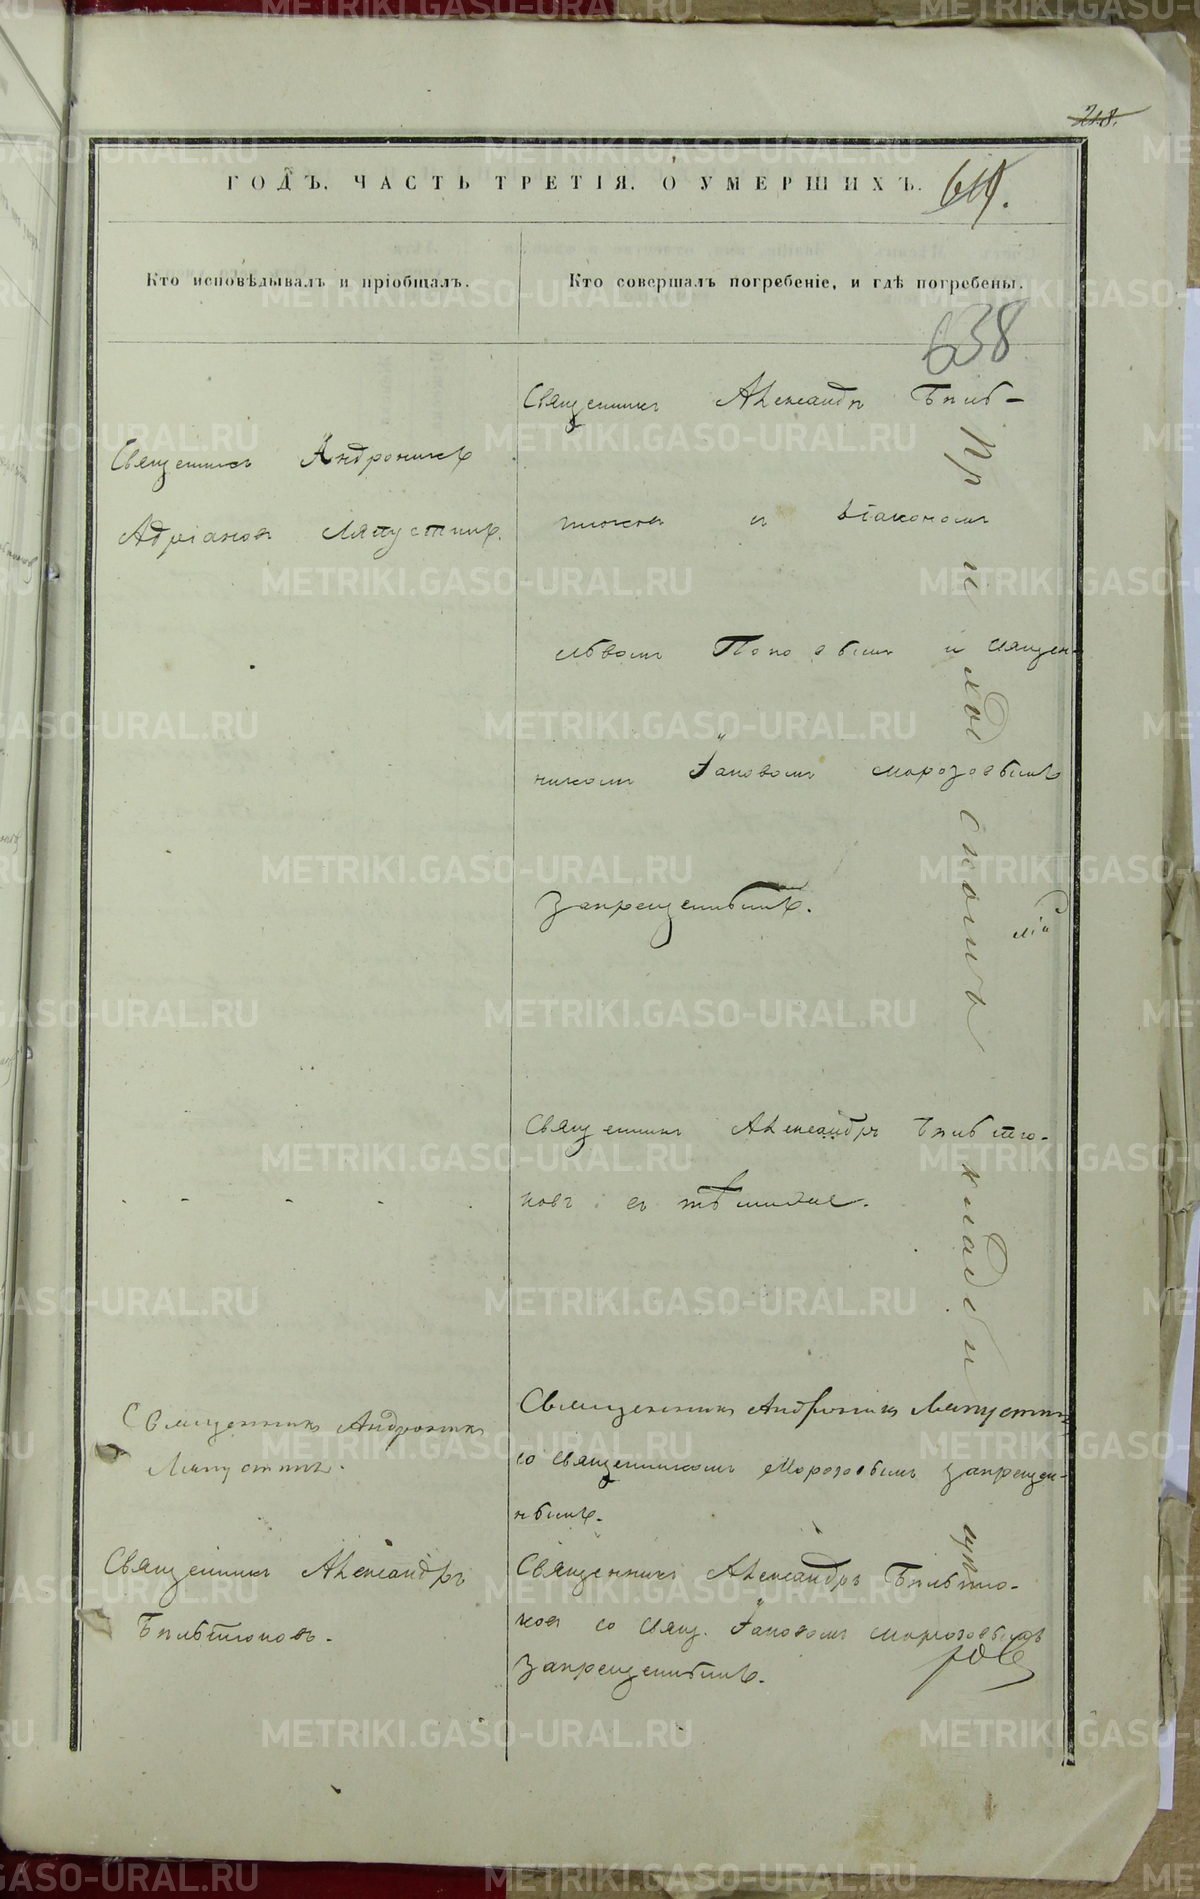 218.
ГОДЪ. ЧАСТЬ ТРЕТІЯ. О УМЕРШИХЪ.
Кто исповѣдывалъ и пріобщалъ.
Кто совершалъ погребеніе, и гдѣ погребены.
638
Священникъ Андроникъ
Адріановъ Ляпустинъ.
Священникъ Александръ
и Діакономъ
Львомъ Поповымъ и священ-
никомъ Іаковомъ Морозовымъ
запрещеннымъ.
Священникъ Александръ
Священникъ Андроникъ
Ляпустинъ.
Священникъ Андроникъ Ляпустинъ
со священникомъ Морозовымъ запрещен-
нымъ.
Священникъ Александръ
Священникъ Александръ
со свящ. Іаковомъ Морозовымъ
запрещеннымъ.
На приходскомъ кладбищѣ
METRIKI.GASO-URAL.RU